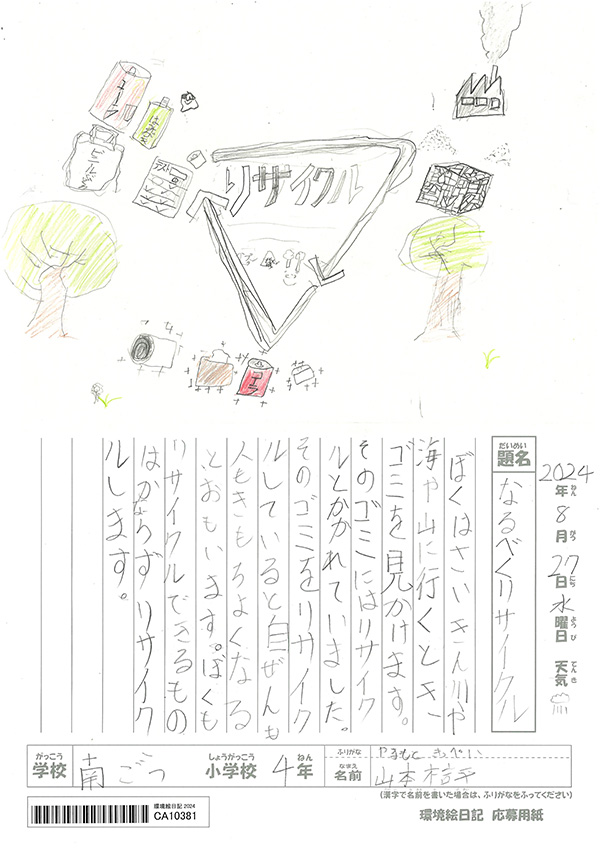 コーラ
リサイクル
コーラ
だいめい
題名
なるべくリサイクル
2024年ねん
8月がつ
27日にち
水曜日ようび
天気てんき
ぼくはさいきん川や
海や山に行くとき、
ゴミを見かけます。
そのゴミにはリサイク
ルとかかれていました。
そのゴミをリサイク
ルしていると自ぜんも
人もきもちよくなる
とおもいます。ぼくも
リサイクルできるもの
はかならずリサイク
ルします。
がっこう
学校
南
しょうがっこう
小学校
4年ねん
ふりがな
やまもと きっぺい
なまえ
名前
山本桔平
(漢字で名前を書いた場合は、ふりがなをふってください)
環境絵日記 2024
CA10381
環境絵日記 応募用紙